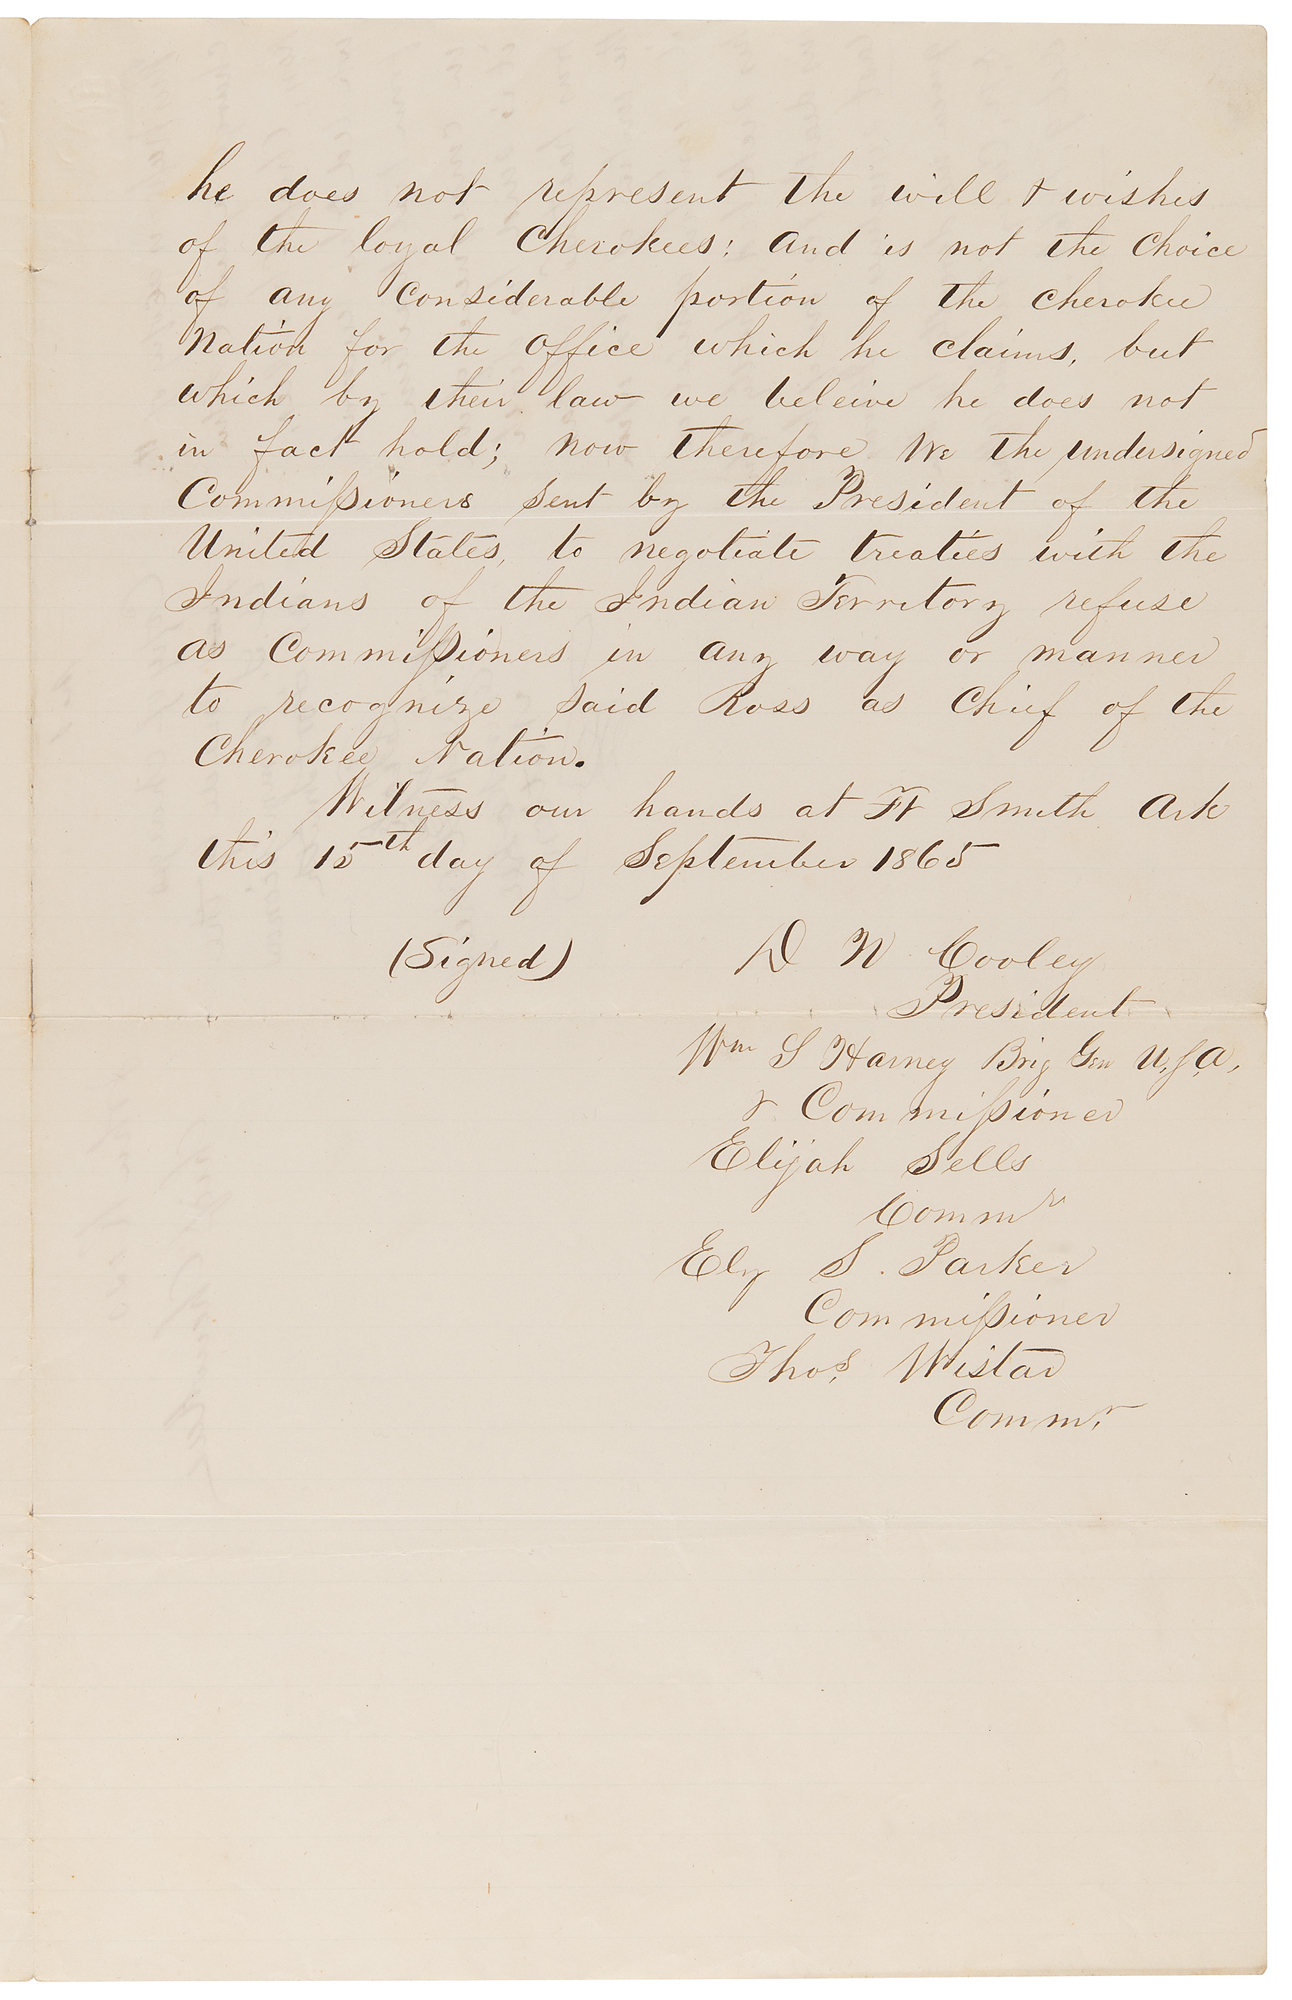 he does not represent the will & wishes
of the loyal Cherokees; and is not the choice
of any considerable portion of the Cherokee
Nation for the office which he claims, but
which by their law we beleive he does not
in fact hold; now therefore We the undersigned
Commissioners sent by the President of the
United States, to negotiate treaties with the
Indians of the Indian Territory refuse
as Commissioners in any way or manner
to recognize said Ross as Chief of the
Cherokee Nation.
Witness our hands at Ft Smith Ark
this 15th day of September 1865
(Signed) D N Cooley
President
Wm S Harney Brig Gen U.S.A.
& Commissioner
Elijah Sells
Commr
Ely S. Parker
Commissioner
Thos. Wistar
Commr.